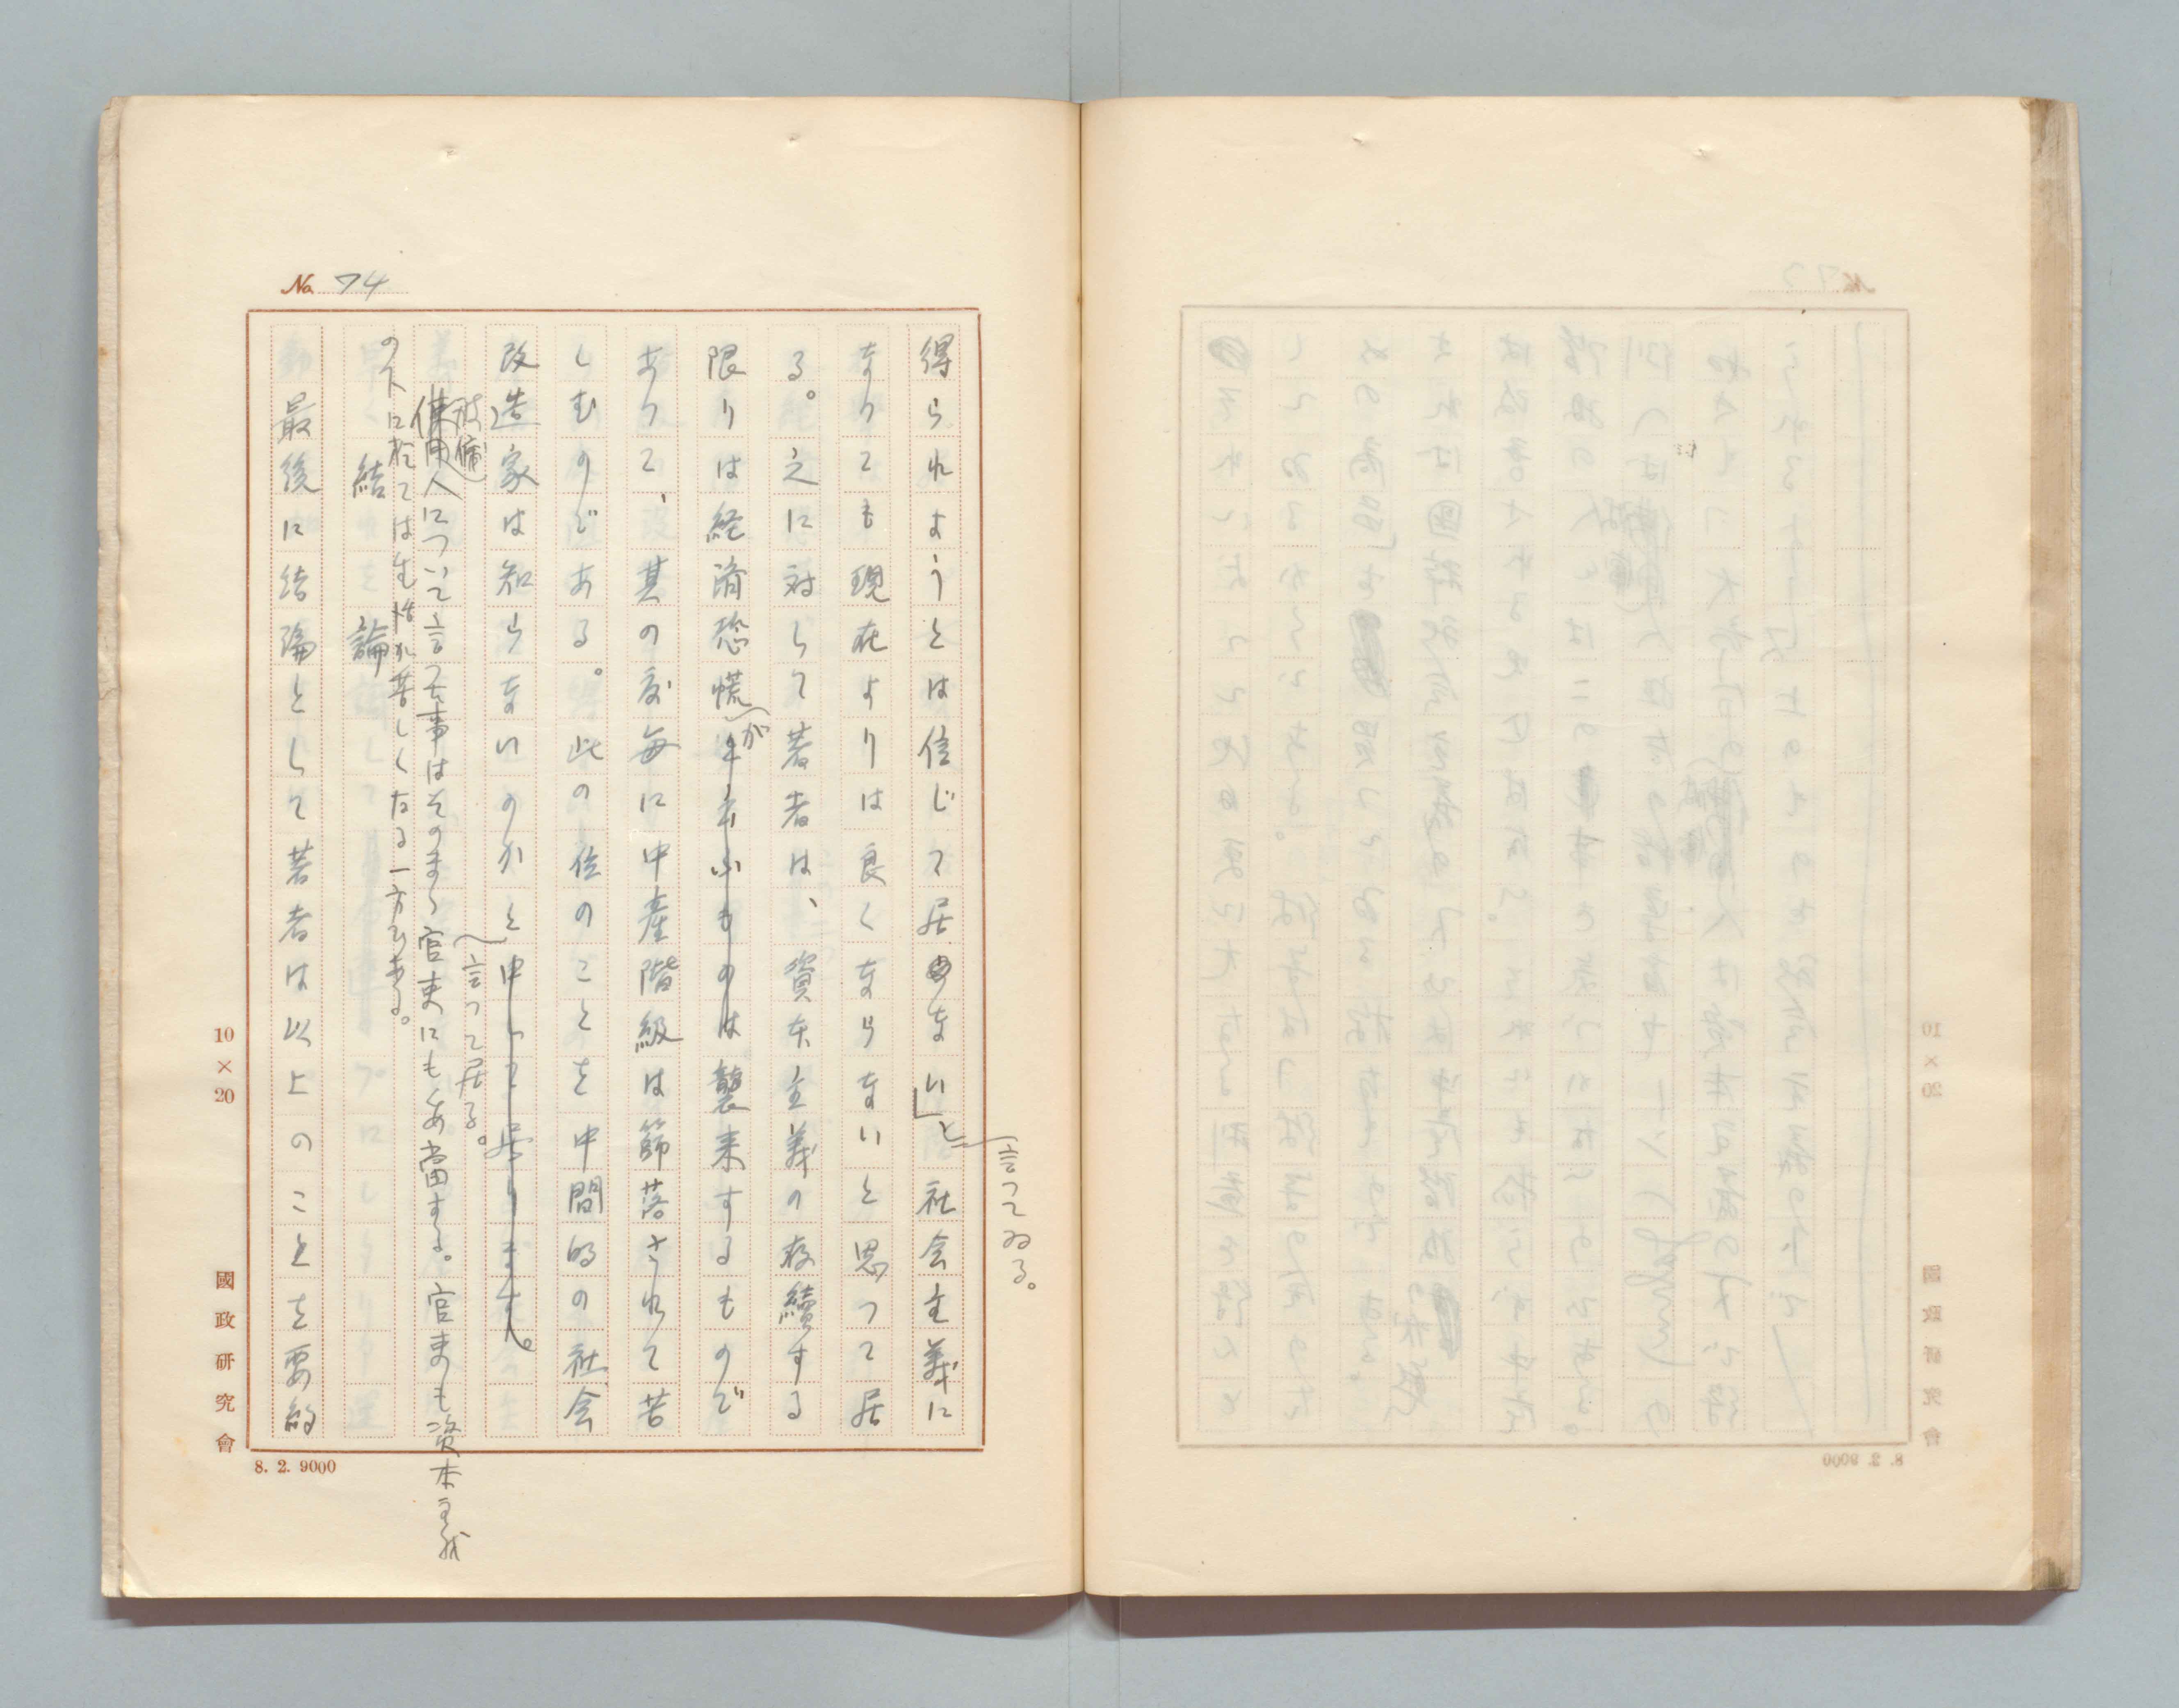 No. 74
得られようとは信じて居ない」と言つてゐる。社会主義に
なつても現在よりは良くならないと思つて居
る。之に対して著者は、資本主義の存續する
限りは経済恐慌が襲来するもので
あつて、其の度毎に中産階級は篩落されて苦
しむのである。此の位のことを中間的の社会
改造家は知らないのかと申して居ります。
言つて居る。
被傭
使用人について言つた事はそのまゝ官吏にもあ當する。官吏も資本主義
の下に於ては生活が苦しくなる一方である。
結論
最後に結論として著者は以上のことを要約
10×20
國政研究會
8. 2. 9000